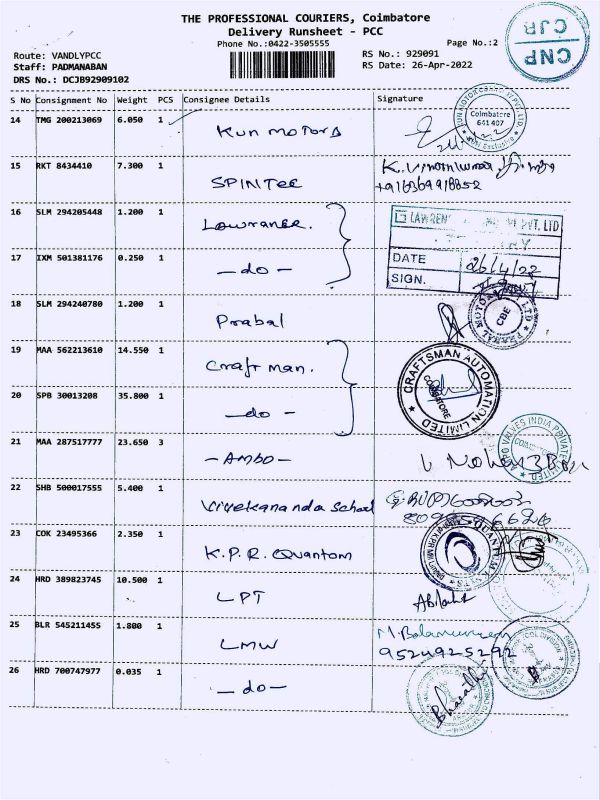 THE PROFESSIONAL COURIERS, Coimbatore
Delivery Runsheet - PCC
Phone No.:0422-3505555
Page No.:2
CNP
CJR
Route: VANDLYPCC
Staff: PADMANABAN
DRS No.: DCJB92909102
RS No.: 929091
RS Date: 26-Apr-2022
S No Consignment No Weight PCS Consignee Details Signature
14 TMG 200213069 6.050 1 Kun Motors
Coimbatore
641 407
15 RKT 8434410 7.300 1 SPINTEC
+916369918852
16 SLM 294205448 1.200 1 Lawrance.
PVT. LTD
17 IXM 501381176 0.250 1 - do -
DATE 26/4/22
SIGN.
18 SLM 294240780 1.200 1 Prabal
CBE
19 MAA 562213610 14.550 1 Craft man.
CRAFTSMAN AUTOMATION LIMITED
COIMBATORE
20 SPB 30013208 35.800 1 - do -
21 MAA 287517777 23.650 3 - AMBO -
VALVES INDIA PRIVATE
22 SHB 500017555 5.400 1 Vivekananda School
23 COK 23495366 2.350 1 K.P.R. Quantom
24 HRD 389823745 10.500 1 LPT
25 BLR 545211455 1.800 1 LMW
9524925292
26 HRD 700747977 0.035 1 - do -
Bharathi